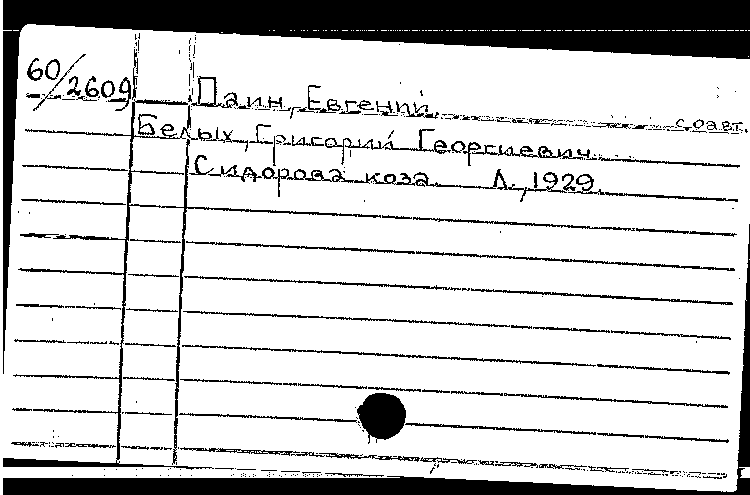 60/2609
Паин, Евгений.
соавт.
Белых, Григорий Георгиевич.
Сидорова коза. Л., 1929.